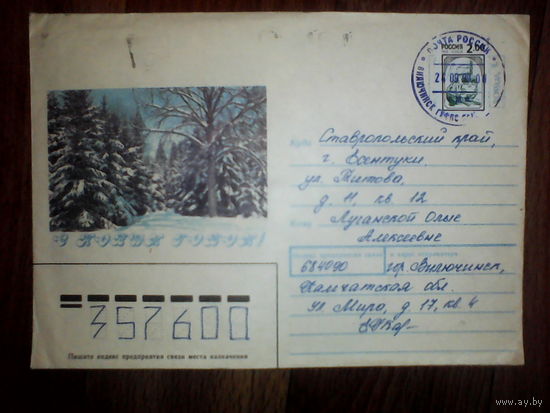 ПОЧТА РОССИИ
РОССИЯ 2.00
Куда
Ставропольский край,
г. Ессентуки
ул. Титова,
д. 11, кв. 12
Кому
Луганской Ольге
Алексеевне
С НОВЫМ ГОДОМ!
684090
гор. Вилючинск,
Камчатская обл.
ул. Мира, д. 17, кв. 4
357600
Пишите индекс предприятия связи места назначения
www.ay.by